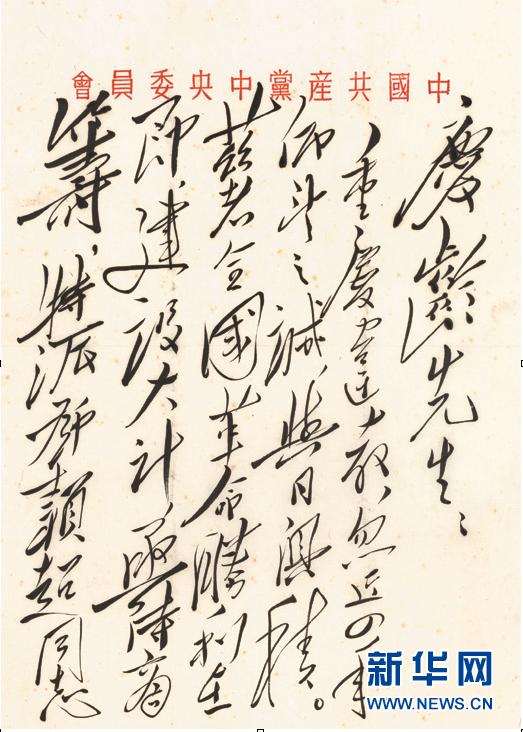 中國共産黨中央委員會
慶齡先生：
重慶違教，忽近四年
仰望之誠，與日俱積。
茲者全國革命勝利在
即，建設大計，亟待商
籌，特派鄧穎超同志
新华网
WWW.NEWS.CN